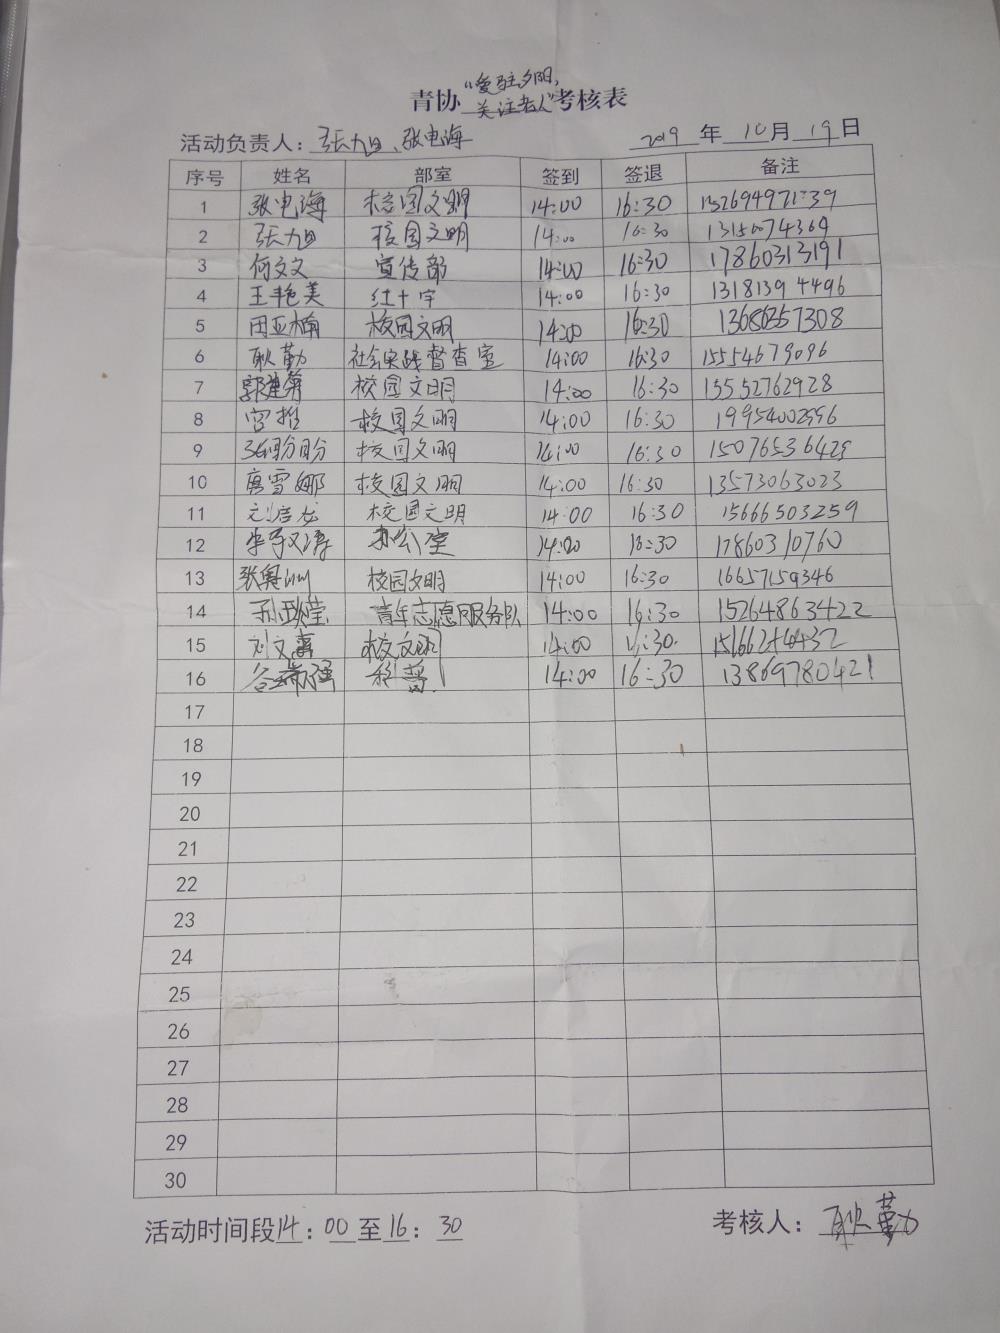 青协"爱驻夕阳,关注老人"考核表
活动负责人：张旭、张电海 2019 年 10 月 19 日
序号 姓名 部室 签到 签退 备注
1 张电海 校园文明 14:00 16:30
2 张旭 校园文明 14:00 16:30
3 何文文 宣传部 14:00 16:30 17860313191
4 王艳美 红十字 14:00 16:30 13181394496
5 田亚楠 校园文明 14:00 16:30
6 耿勤 社会实践督查室 14:00 16:30 15554679096
7 校园文明 14:00 16:30 15552762928
8 校园文明 14:00 16:30
9 张盼盼 校园文明 14:00 16:30 15076536429
10 唐雪娜 校园文明 14:00 16:30 13573063023
11 校园文明 14:00 16:30 15666503259
12 办公室 14:00 16:30 17860310760
13 校园文明 14:00 16:30 16657159346
14 青年志愿服务队 14:00 16:30 15264863422
15 14:00
16 14:00 16:30 13869780421
17
18
19
20
21
22
23
24
25
26
27
28
29
30
活动时间段14：00至16：30 考核人：耿勤